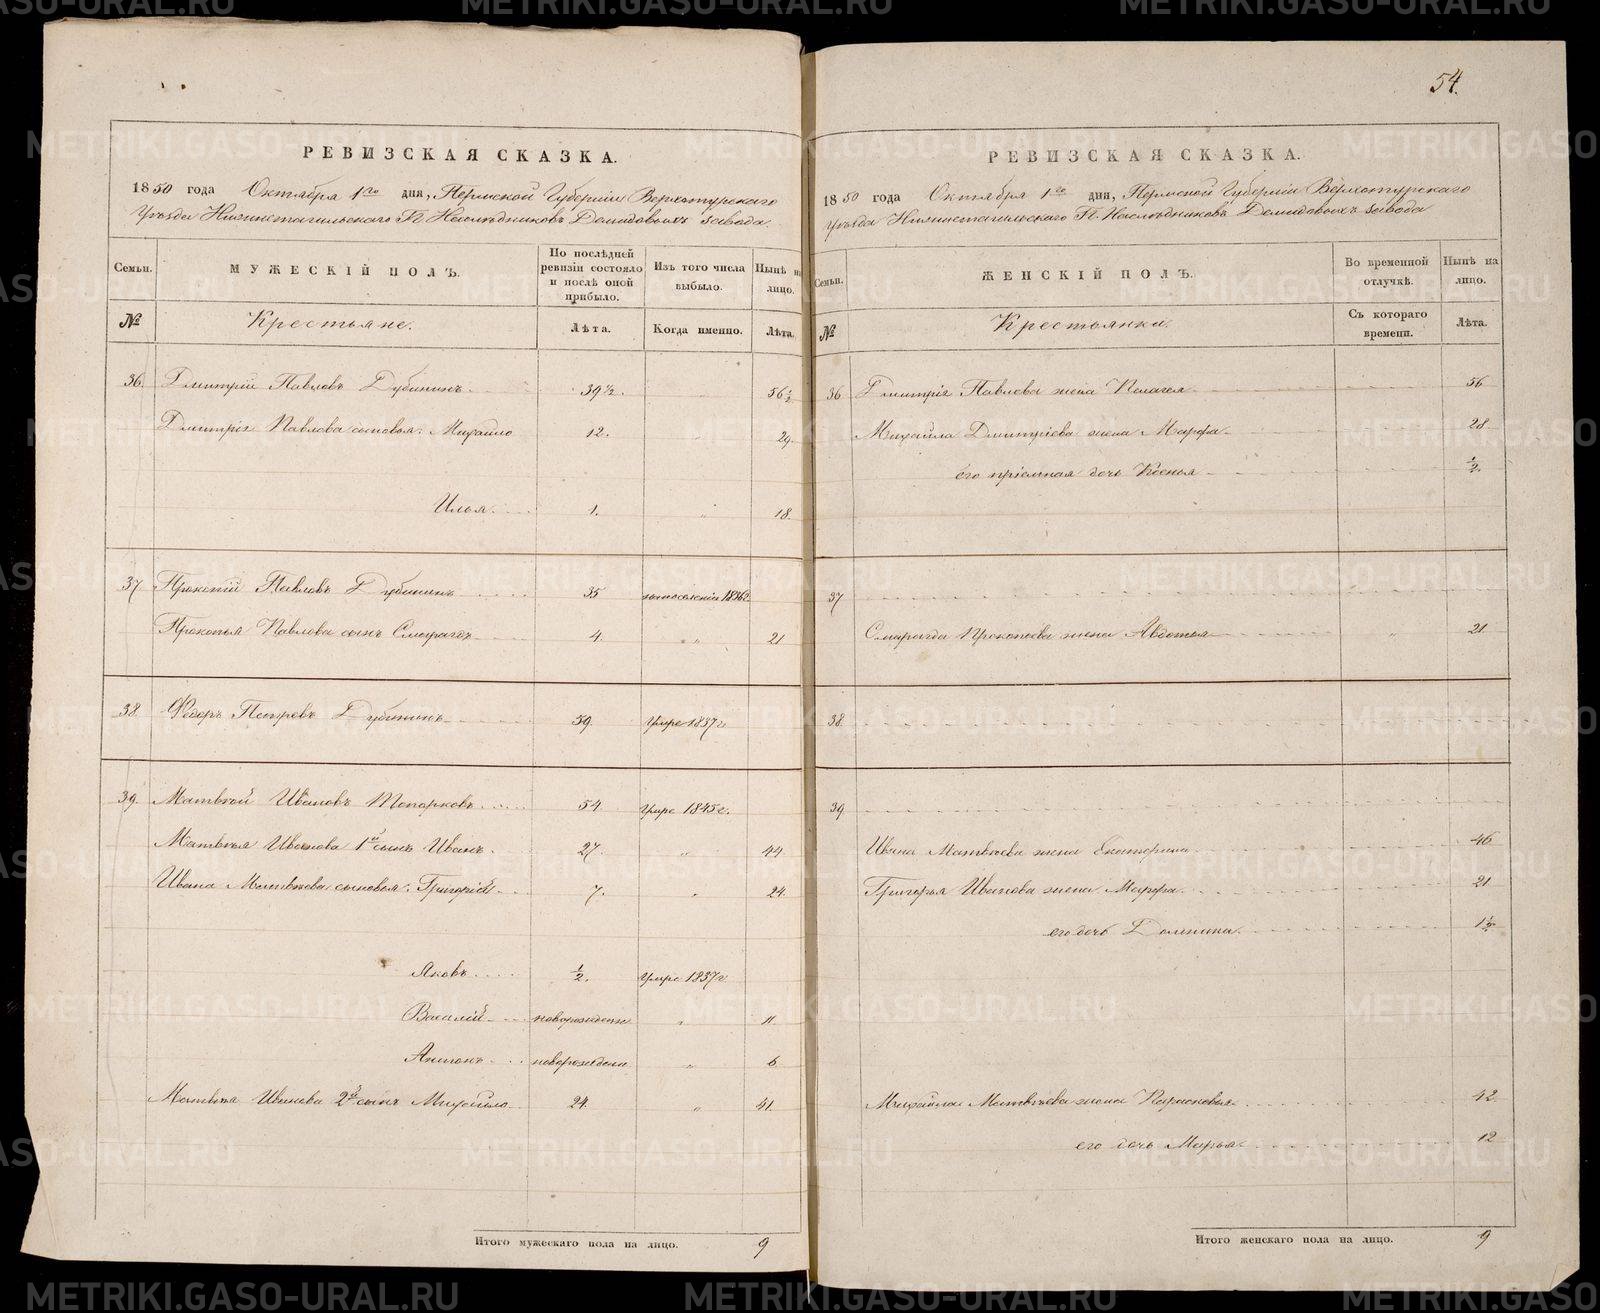 54.
РЕВИЗСКАЯ СКАЗКА.
1850 года Октября 1го дня, Пермской Губерніи Верхотурскаго
Уѣзда Нижнетагильскаго Гг. Наслѣдниковъ Демидовыхъ завода.
Семьи. МУЖЕСКІЙ ПОЛЪ. По послѣдней ревизіи состояло и послѣ оной прибыло. Изъ того числа выбыло. Нынѣ на лицо.
№ Крестьяне. Лѣта. Когда именно. Лѣта.
36. Дмитрій Павловъ Дубининъ 39½. " 56½
Дмитрія Павлова сыновья: Михайло 12. " 29
Илья 1. " 18.
37. Прокопій Павловъ Дубининъ 35 1836г.
Прокопья Павлова сынъ Смарагдъ 4. " 21
38 Федоръ Петровъ Дубининъ 59. умре 1837г
39. Матвѣй Ивановъ Топорковъ 54 умре 1845г.
Матвѣя Иванова 1й сынъ Иванъ 27. " 44
Ивана Матвѣева сыновья: Григорій 7. " 24.
Яковъ ½. умре 1837г
Василій новорожденъ " 11.
Антонъ новорожденъ " 6
Матвѣя Иванова 2й сынъ Михайло 24. " 41.
Итого мужескаго пола на лицо. 9
РЕВИЗСКАЯ СКАЗКА.
1850 года Октября 1го дня, Пермской Губерніи Верхотурскаго
Уѣзда Нижнетагильскаго Гг. Наслѣдниковъ Демидовыхъ завода
Семьи. ЖЕНСКІЙ ПОЛЪ. Во временной отлучкѣ. Нынѣ на лицо.
№ Крестьянки. Съ котораго времени. Лѣта.
36 Дмитрія Павлова жена Пелагея 56
Михайла Дмитріева жена Марфа 28
его пріемная дочь Ксенья ½.
37
Смарагда Прокопьева жена Авдотья " 21
38
39
Ивана Матвѣева жена Екатерина 46
Григорья Иванова жена Марфа 21
его дочь Домнина 1½
Михайла Матвѣева жена Парасковья 42
его дочь Марья 12
Итого женскаго пола на лицо. 9
METRIKI.GASO-URAL.RU